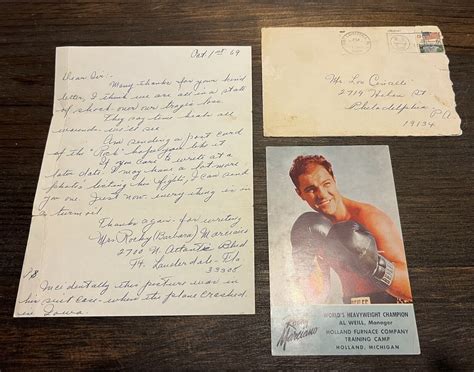 Oct 1st 69
Dear Sir:
Many thanks for your kind
letter, I think we are all in a state
of shock over our tragic loss.
They say time heals all
wounds
Am sending a post card
of the "Rock" hope you like it
If you care to write at a
later date. I may have a few more
photos, of his fights, I can send
you one. Just now everything is in
a turmoil.
Thanks again for writing
Mrs Rocky (Barbara) Marciano
2700 N. Atlantic Blvd
Ft. Lauderdale - Fla
33305
P.S.
Incidentally this picture was in
his suit case when the plane crashed
in Iowa.
Mr. Lou
2719 St.
Philadelphia
P.A.
19134
Rocky Marciano
WORLD'S HEAVYWEIGHT CHAMPION
AL WEILL, Manager
HOLLAND FURNACE COMPANY
TRAINING CAMP
HOLLAND, MICHIGAN